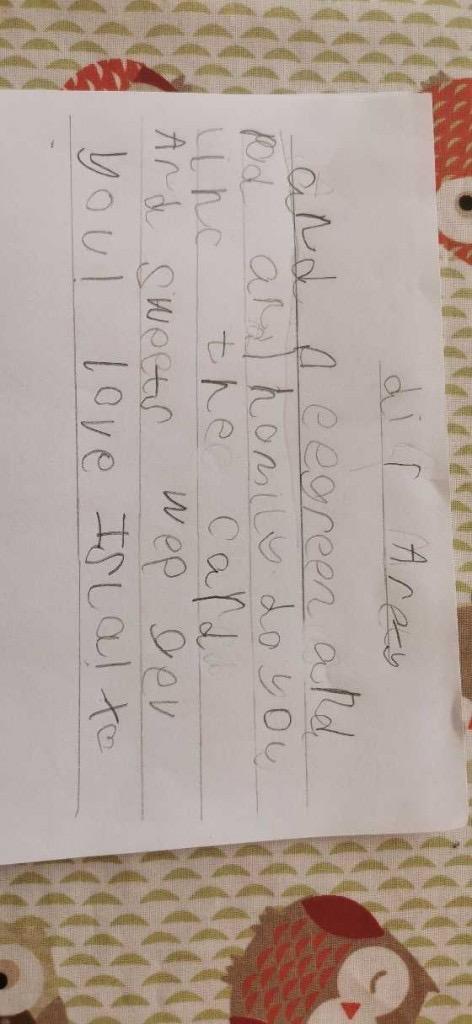 dir Aray
and A eegreen and
pd anal homily. do you
line thee card
And sweets wep Dev
youl love Isual to